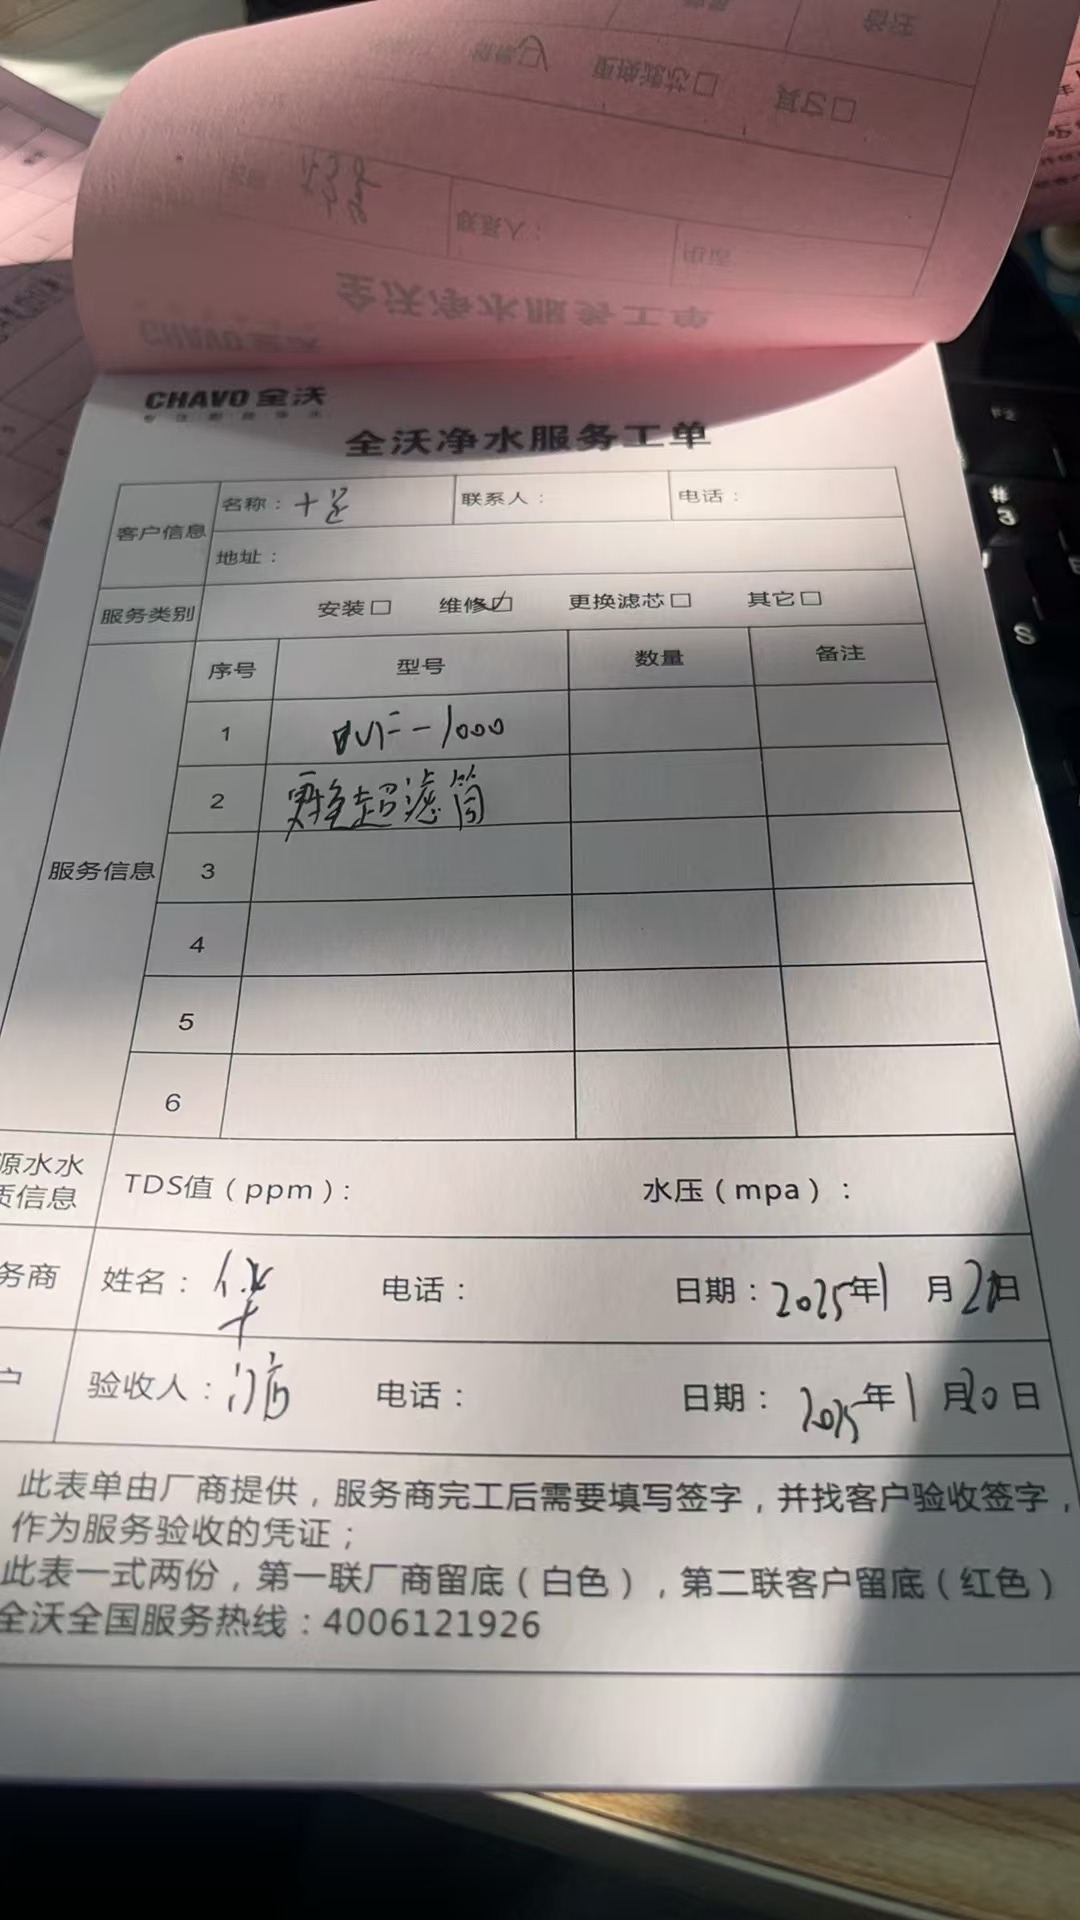 CHAVO 全沃
全沃净水服务工单
客户信息
名称：
联系人：
电话：
地址：
服务类别
安装□ 维修☑ 更换滤芯□ 其它□
服务信息
序号 型号 数量 备注
1 -1000
2 超滤筒
3
4
5
6
源水水
质信息
TDS值（ppm）：
水压（mpa）：
务商 姓名： 电话： 日期：2025年1月 日
户 验收人： 电话： 日期：2025年1月20日
此表单由厂商提供，服务商完工后需要填写签字，并找客户验收签字，
作为服务验收的凭证；
此表一式两份，第一联厂商留底（白色），第二联客户留底（红色）
全沃全国服务热线：4006121926